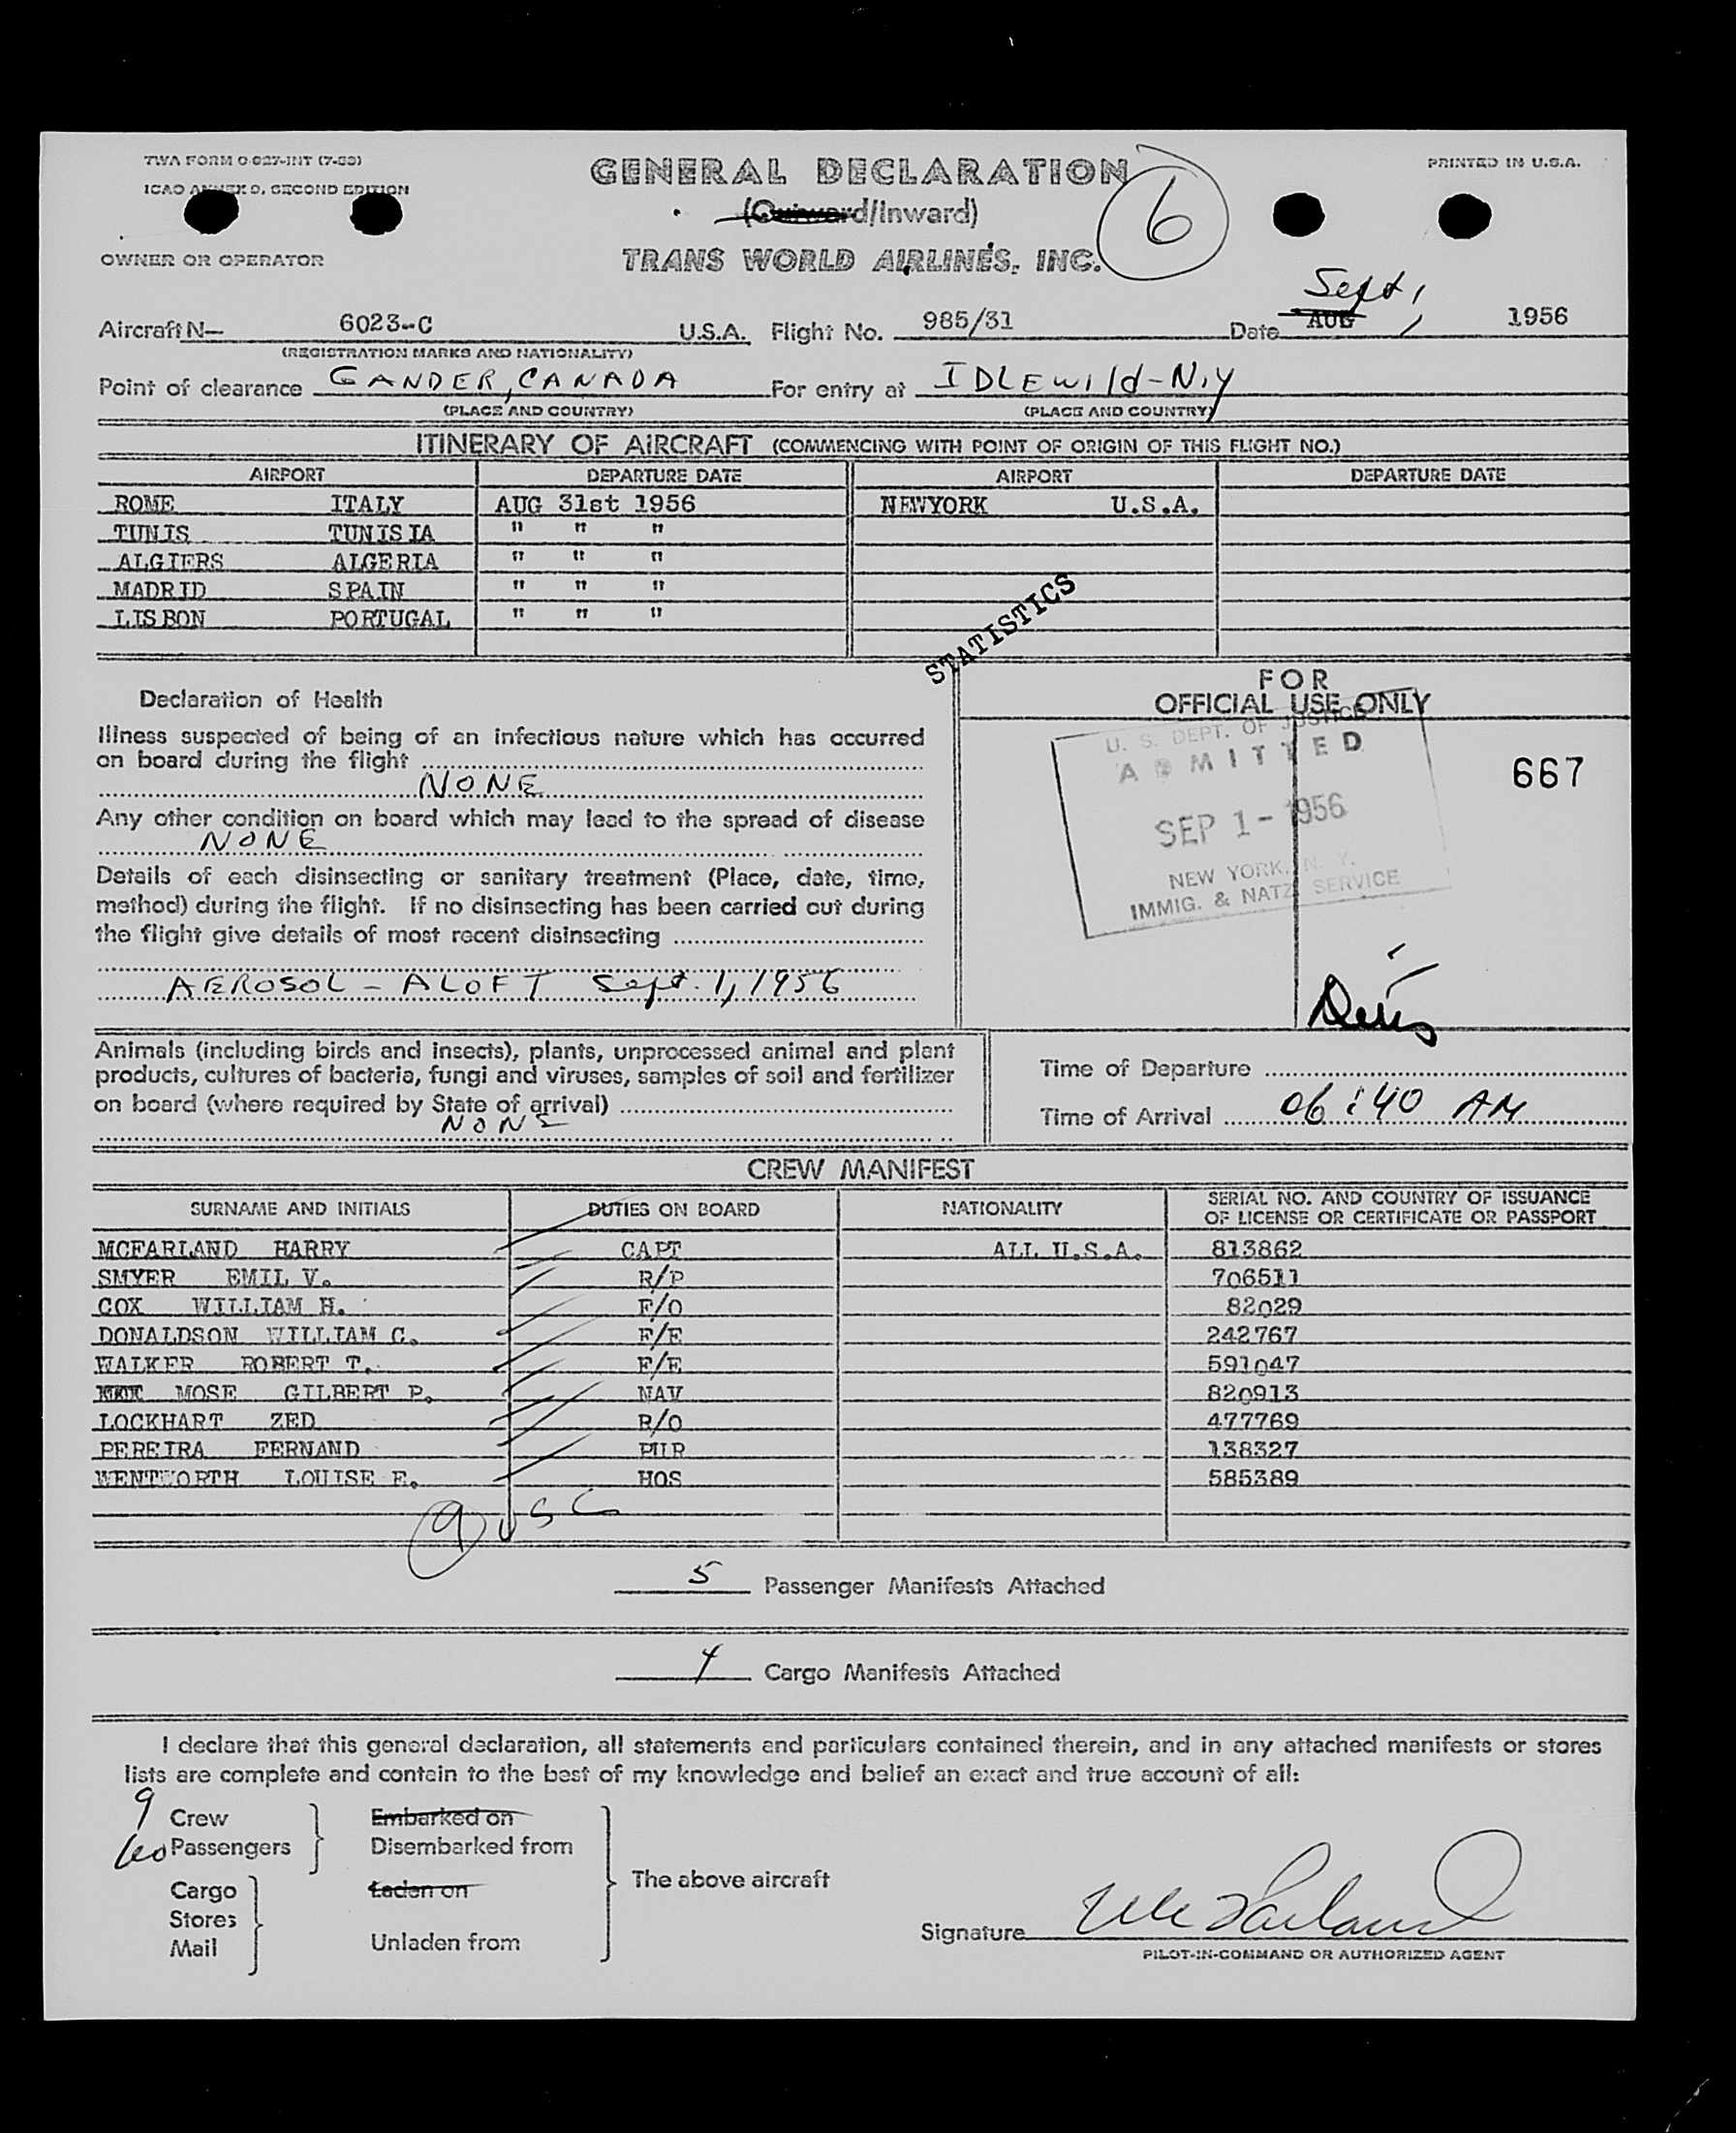 TWA FORM O-827-INT (7-53)
ICAO ANNEX 9, SECOND EDITION
GENERAL DECLARATION
(Outward/Inward)
6
PRINTED IN U.S.A.
OWNER OR OPERATOR
TRANS WORLD AIRLINES, INC.
Sept 1
Aircraft N— 6023-C U.S.A. Flight No. 985/31 Date AUG 1956
(REGISTRATION MARKS AND NATIONALITY)
Point of clearance GANDER, CANADA For entry at IDLEWILd-N.Y
(PLACE AND COUNTRY) (PLACE AND COUNTRY)
ITINERARY OF AIRCRAFT (COMMENCING WITH POINT OF ORIGIN OF THIS FLIGHT NO.)
AIRPORT DEPARTURE DATE AIRPORT DEPARTURE DATE
ROME ITALY AUG 31st 1956 NEWYORK U.S.A.
TUNIS TUNISIA " " "
ALGIERS ALGERIA " " "
MADRID SPAIN " " "
LISBON PORTUGAL " " "
STATISTICS
FOR
OFFICIAL USE ONLY
U. S. DEPT. OF JUSTICE
ADMITTED
SEP 1 - 1956
NEW YORK, N. Y.
IMMIG. & NATZ. SERVICE
667
Declaration of Health
Illness suspected of being of an infectious nature which has occurred
on board during the flight
NONE
Any other condition on board which may lead to the spread of disease
NONE
Details of each disinsecting or sanitary treatment (Place, date, time,
method) during the flight. If no disinsecting has been carried out during
the flight give details of most recent disinsecting
AEROSOL - ALOFT Sept. 1, 1956
Animals (including birds and insects), plants, unprocessed animal and plant
products, cultures of bacteria, fungi and viruses, samples of soil and fertilizer
on board (where required by State of arrival)
NONE
Time of Departure
Time of Arrival 06:40 AM
CREW MANIFEST
SURNAME AND INITIALS DUTIES ON BOARD NATIONALITY SERIAL NO. AND COUNTRY OF ISSUANCE
OF LICENSE OR CERTIFICATE OR PASSPORT
MCFARLAND HARRY CAPT ALL U.S.A. 813862
SMYER EMIL V. R/P 706511
COX WILLIAM H. F/O 82029
DONALDSON WILLIAM C. F/E 242767
WALKER ROBERT T. F/E 591047
MOSE GILBERT P. NAV 820913
LOCKHART ZED R/O 477769
PEREIRA FERNAND PUR 138327
WENTWORTH LOUISE E. HOS 585389
9 USC
5 Passenger Manifests Attached
4 Cargo Manifests Attached
I declare that this general declaration, all statements and particulars contained therein, and in any attached manifests or stores
lists are complete and contain to the best of my knowledge and belief an exact and true account of all:
9 Crew
60 Passengers
Embarked on
Disembarked from
Cargo
Stores
Mail
Laden on
Unladen from
The above aircraft
Signature McFarland
PILOT-IN-COMMAND OR AUTHORIZED AGENT